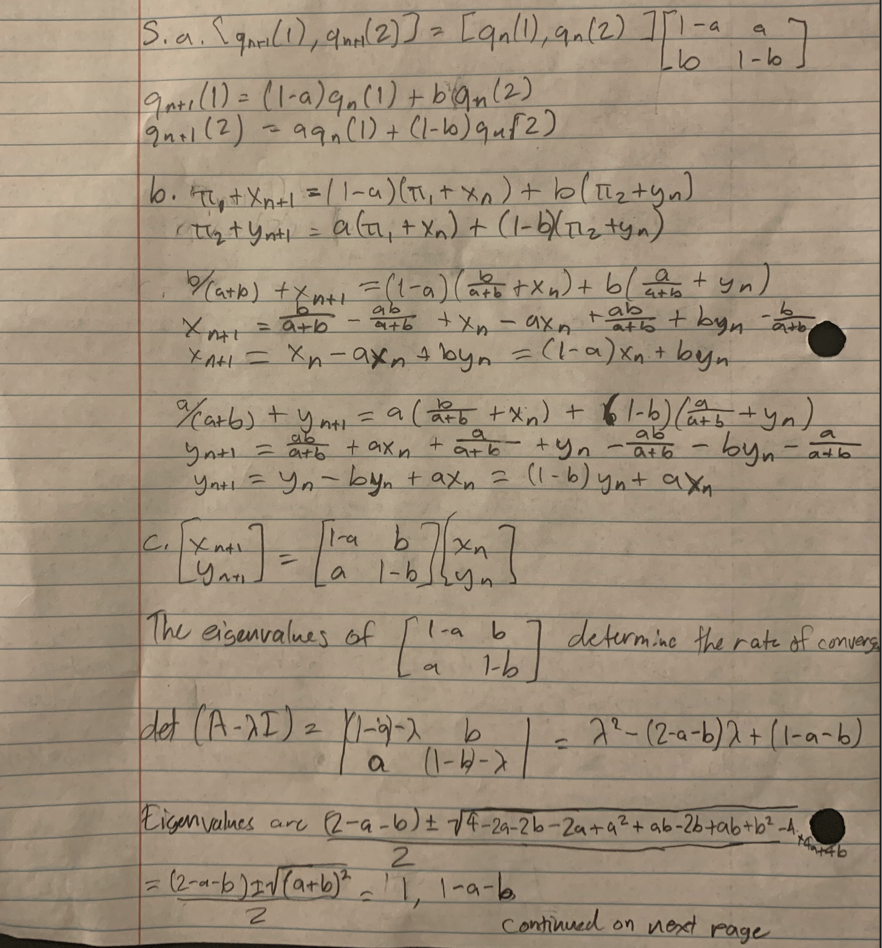 5. a. [qₙ₊₁(1), qₙ₊₁(2)] = [qₙ(1), qₙ(2)] [1-a a; b 1-b]
qₙ₊₁(1) = (1-a)qₙ(1) + b qₙ(2)
qₙ₊₁(2) = aqₙ(1) + (1-b)qₙ(2)
b. π₁ + xₙ₊₁ = (1-a)(π₁ + xₙ) + b(π₂ + yₙ)
π₂ + yₙ₊₁ = a(π₁ + xₙ) + (1-b)(π₂ + yₙ)
b/(a+b) + xₙ₊₁ = (1-a)(b/(a+b) + xₙ) + b(a/(a+b) + yₙ)
xₙ₊₁ = b/(a+b) - ab/(a+b) + xₙ - axₙ + ab/(a+b) + byₙ - b/(a+b)
xₙ₊₁ = xₙ - axₙ + byₙ = (1-a)xₙ + byₙ
a/(a+b) + yₙ₊₁ = a(b/(a+b) + xₙ) + (1-b)(a/(a+b) + yₙ)
yₙ₊₁ = ab/(a+b) + axₙ + a/(a+b) + yₙ - ab/(a+b) - byₙ - a/(a+b)
yₙ₊₁ = yₙ - byₙ + axₙ = (1-b)yₙ + axₙ
c. [xₙ₊₁; yₙ₊₁] = [1-a b; a 1-b] [xₙ; yₙ]
The eigenvalues of [1-a b; a 1-b] determine the rate of converg
det (A-λI) = |(1-a)-λ b; a (1-b)-λ| = λ² - (2-a-b)λ + (1-a-b)
Eigenvalues are ((2-a-b) ± √(4-2a-2b-2a+a²+ab-2b+ab+b²-4+4a+4b))/2
= ((2-a-b) ± √((a+b)²))/2 = 1, 1-a-b
Continued on next page